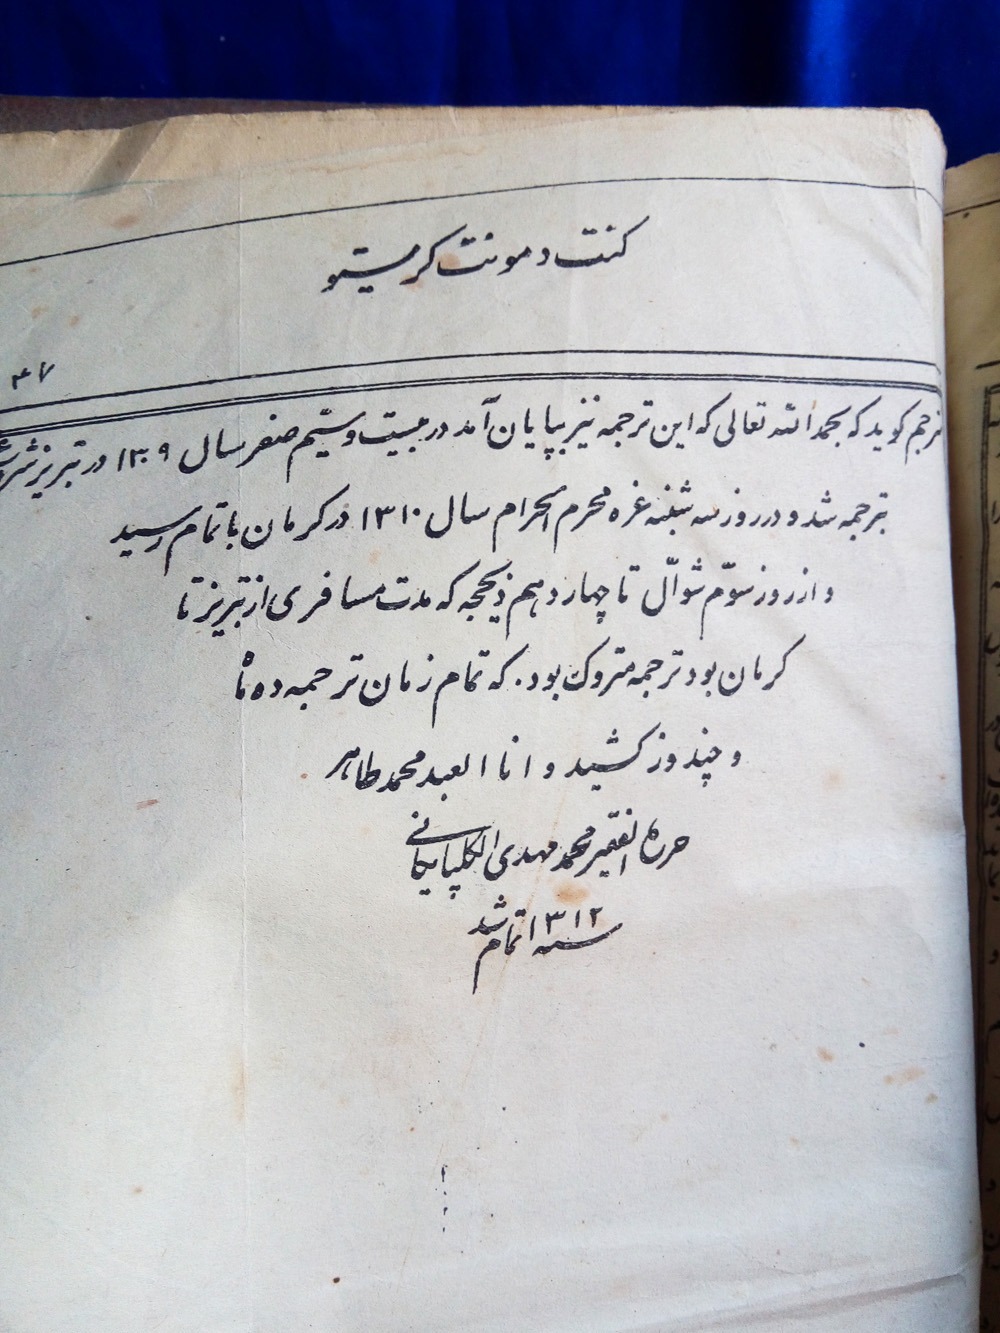 کنت دمونت کریستو
۴۷
مترجم کوید که بحمد الله تعالی که این ترجمه نیز بپایان آمد در بیست و ششم صفر سال ۱۳۰۹ در تبریز شروع
بترجمه شد و در روز سه شنبه غره محرم الحرام سال ۱۳۱۰ در کرمان باتمام رسید
و از روز سوّم شوّال تا چهاردهم ذیحجه که مدت مسافری از تبریز تا
کرمان بود ترجمه متروک بود. که تمام زمان ترجمه ده ماه
و چند روز کشید و انا العبد محمد طاهر
حرره الفقیر محمد مهدی الکلپایکانی
سنه ۱۳۱۲ تمام شد